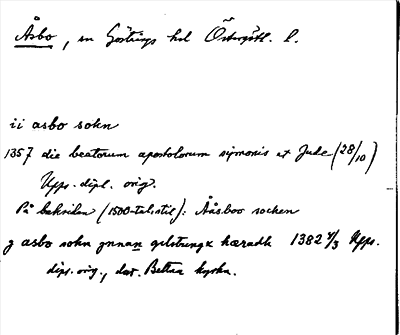 Åsbo, sn Göstrings hd Östergötl. l.
ii asbo sokn
1357 die beatorum apostolorum symonis et Jude (28/10)
Upps. dipl. orig.
På baksidan (1500-tals stil): Aåsboo socken
j asbo sokn jnnan gilstrungx hæradh 1382 4/3 Upps.
dipl. orig., dat. Bettna kyrka.